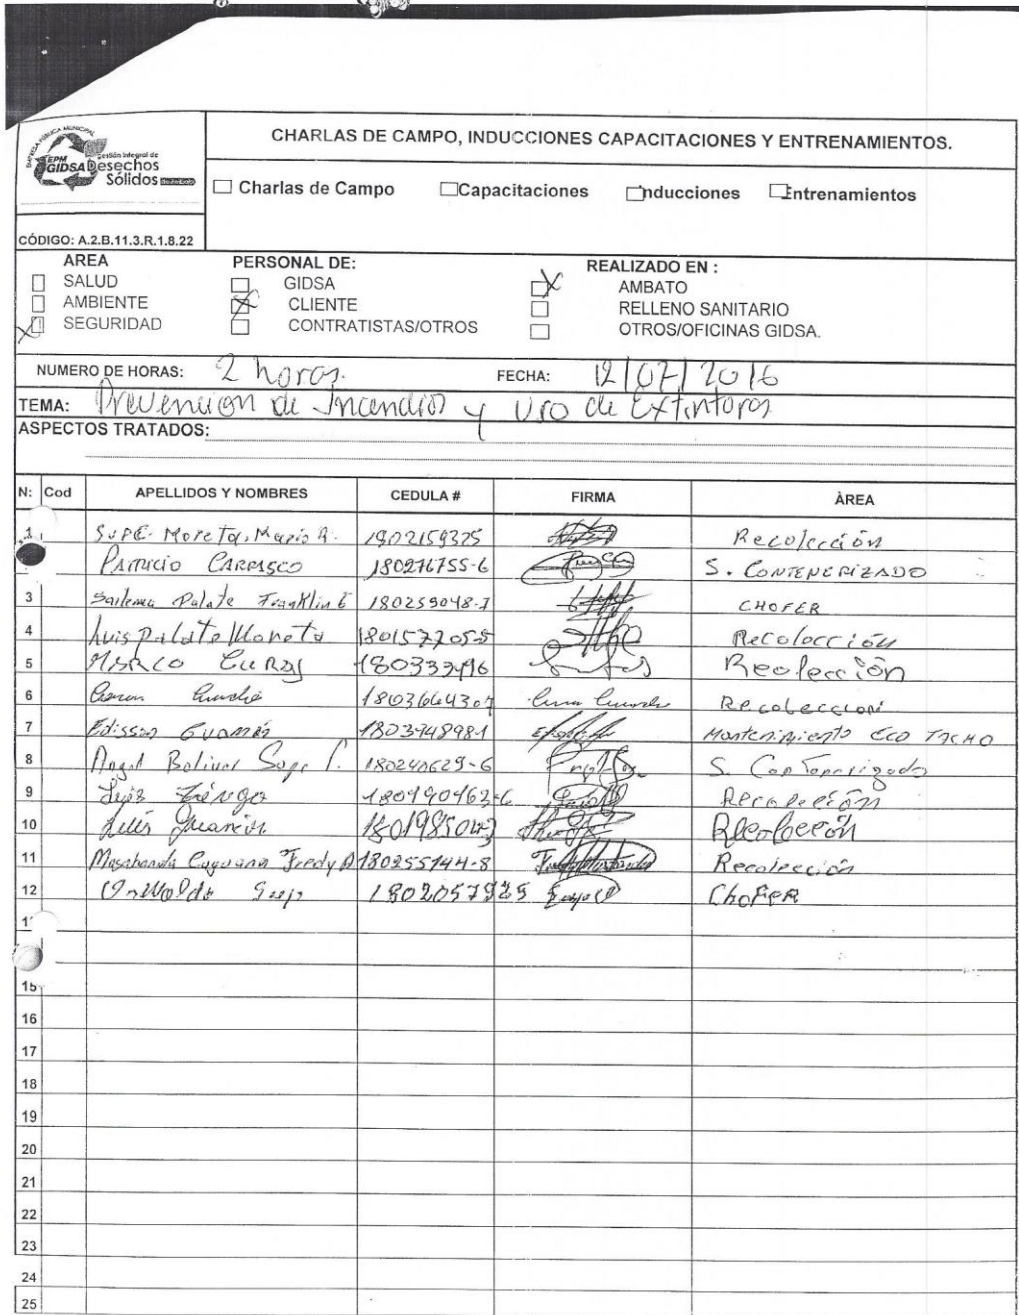 EMPRESA PÚBLICA MUNICIPAL
EPM GIDSA
gestión integral de
Desechos
Sólidos
CHARLAS DE CAMPO, INDUCCIONES CAPACITACIONES Y ENTRENAMIENTOS.
Charlas de Campo Capacitaciones nducciones Entrenamientos
CÓDIGO: A.2.B.11.3.R.1.8.22
AREA PERSONAL DE: REALIZADO EN :
SALUD GIDSA AMBATO
AMBIENTE CLIENTE RELLENO SANITARIO
SEGURIDAD CONTRATISTAS/OTROS OTROS/OFICINAS GIDSA.
NUMERO DE HORAS: 2 horas. FECHA: 12/07/2016
TEMA: Prevencion de Incendios y Uso de Extintores
ASPECTOS TRATADOS:
N: Cod APELLIDOS Y NOMBRES CEDULA # FIRMA ÀREA
1 Supe Moreta, Mario R. 1802159325 Recolección
PATRICIO CARRASCO 180276755-6 S. CONTENERIZADO
3 Sailema Palate Franklin E 180259048-7 CHOFER
4 Luis Palate Moreta Recolección
5 MARCO Recolección
6 1803664307 Recoleccion
7 Edisson Guamán 180374898-1 Mantenimiento ECO TACHO
8 Angel Bolivar Supe 180240629-6 S.
9 Luis 180190463-6 Recolección
10 Recolección
11 Masabanda Fredy 180255744-8 Recolección
12 1802057925 Chofer
1
15
16
17
18
19
20
21
22
23
24
25